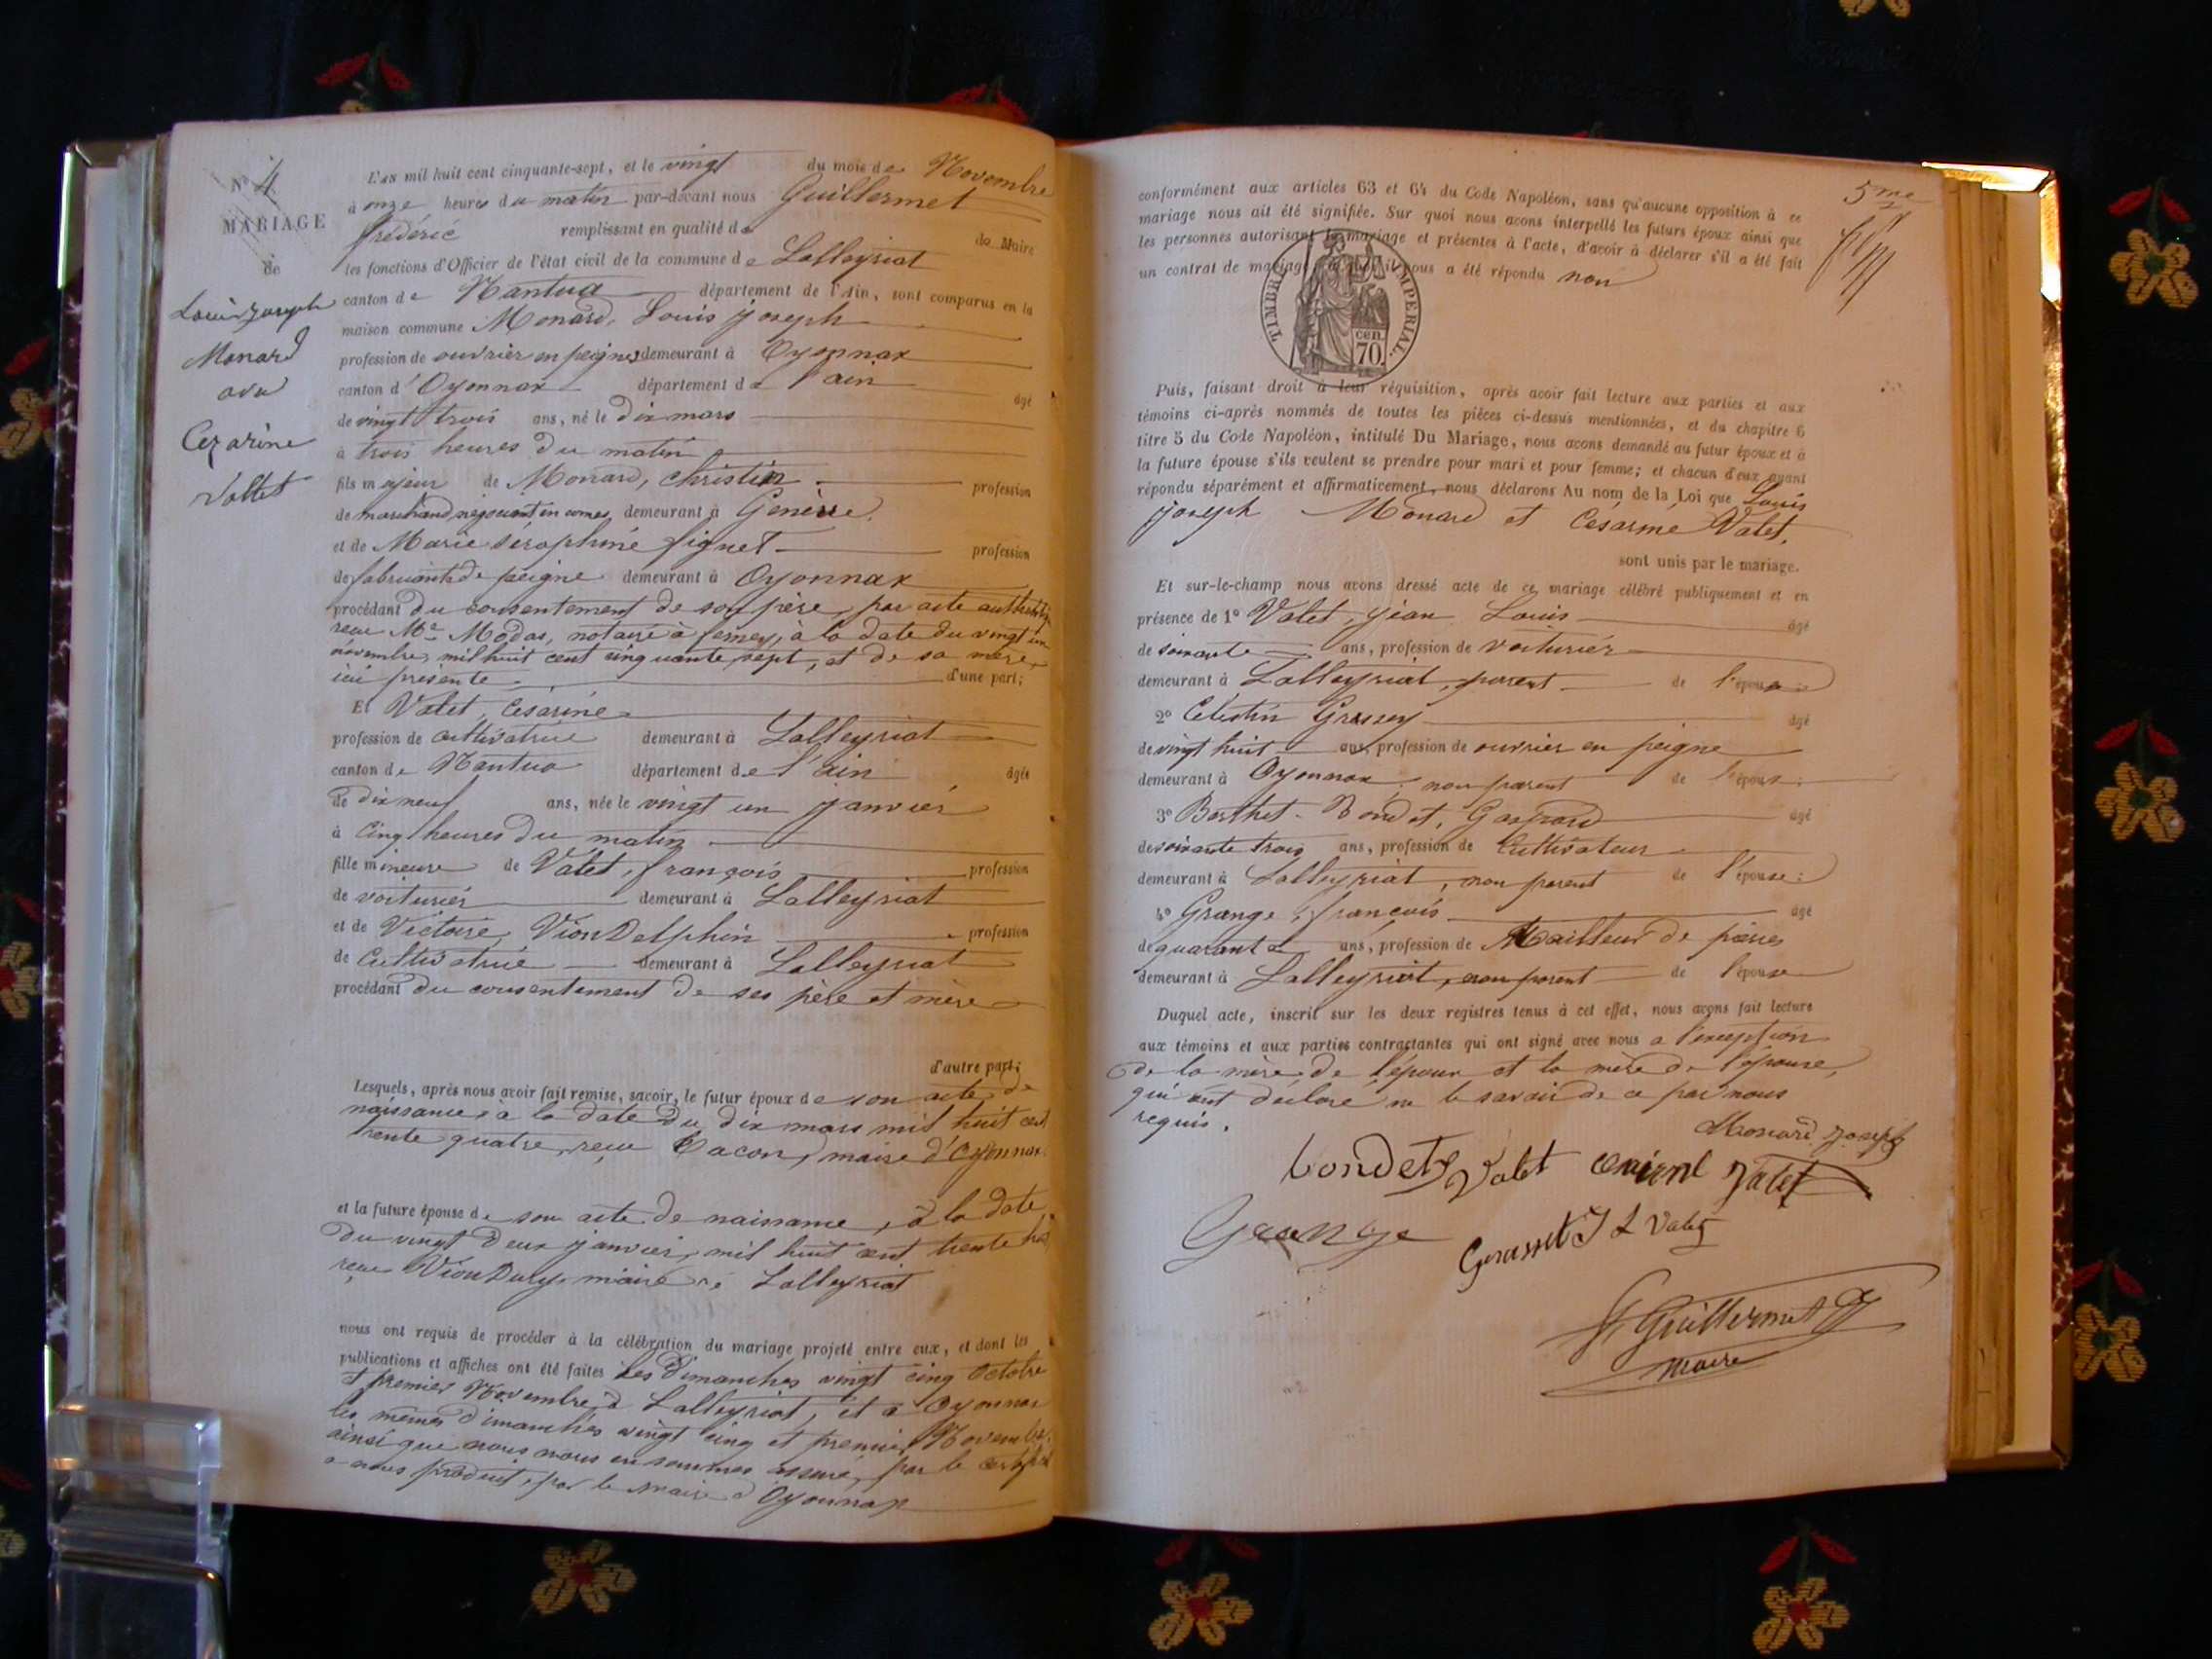 N° 4
MARIAGE
de
Louis Joseph
Monard
avec
Cezarine
Vallet
L'AN mil huit cent cinquante-sept, et le vingt du mois de Novembre
à onze heures du matin par-devant nous Guillermet
frédéric remplissant en qualité de Maire
les fonctions d'Officier de l'état civil de la commune de Lalleyriat
canton de Nantua département de l'Ain, sont comparus en la
maison commune Monard, Louis joseph
profession de ouvrier en peignes demeurant à Oyonnax
canton d'Oyonnax département de l'ain âgé
de vingt trois ans, né le dix mars
à trois heures du matin
fils majeur de Monard, Christin profession
de marchand, négociant en cornes, demeurant à Genève
et de Marie séraphine fignet profession
de fabricante de peigne demeurant à Oyonnax
procédant du consentement de son père, par acte authentique
recu Me Modas, notaire à ferney, à la date du vingt un
novembre, mil huit cent cinquante sept, et de sa mère
ici présente d'une part;
Et Valet, Césarine
profession de cultivatrice demeurant à Lalleyriat
canton de Nantua département de l'ain âgée
de dix neuf ans, née le vingt un janvier
à Cinq heures du matin
fille mineure de Valet, françois profession
de voiturier demeurant à Lalleyriat
et de Victoire Vion Delphin profession
de Cultivatrice demeurant à Lalleyriat
procédant du consentement de ses père et mère
d'autre part;
Lesquels, après nous avoir fait remise, savoir, le futur époux de son acte de
naissance, à la date du dix mars mil huit cent
trente quatre, reçu Bacon, maire d'Oyonnax
et la future épouse de son acte de naissance, à la date
du vingt deux janvier, mil huit cent trente huit
reçu Vion Dury, maire de Lalleyriat
nous ont requis de procéder à la célébration du mariage projeté entre eux, et dont les
publications et affiches ont été faites les Dimanches vingt cinq Octobre
et premier Novembre à Lalleyriat, et à Oyonnax
les mêmes dimanches vingt cinq et premier Novembre
ainsi que nous nous en sommes assuré, par le certificat
à nous produit, par le maire d'Oyonnax
5me
conformément aux articles 63 et 64 du Code Napoléon, sans qu'aucune opposition à ce
mariage nous ait été signifiée. Sur quoi nous avons interpellé les futurs époux ainsi que
les personnes autorisant le mariage et présentes à l'acte, d'avoir à déclarer s'il a été fait
un contrat de mariage, à quoi il nous a été répondu non
TIMBRE IMPÉRIAL.
70. cen.
Puis, faisant droit à leur réquisition, après avoir fait lecture aux parties et aux
témoins ci-après nommés de toutes les pièces ci-dessus mentionnées, et du chapitre 6
titre 5 du Code Napoléon, intitulé Du Mariage, nous avons demandé au futur époux et à
la future épouse s'ils veulent se prendre pour mari et pour femme; et chacun d'eux ayant
répondu séparément et affirmativement, nous déclarons Au nom de la Loi que Louis
joseph Monard et Césarine Valet,
sont unis par le mariage.
Et sur-le-champ nous avons dressé acte de ce mariage célébré publiquement et en
présence de 1° Valet, jean Louis âgé
de soixante ans, profession de voiturier
demeurant à Lalleyriat, parent de l'épouse
2° Célestin Grassey âgé
de vingt huit ans, profession de ouvrier en peigne
demeurant à Oyonnax, non parent de l'épouse;
3° Berthet-Bondet, Gaspard âgé
de soixante trois ans, profession de Cultivateur
demeurant à Lalleyriat, non parent de l'épouse;
4° Grange, françois âgé
de quarante ans, profession de Mailleur de pierres
demeurant à Lalleyriat, non parent de l'épouse
Duquel acte, inscrit sur les deux registres tenus à cet effet, nous avons fait lecture
aux témoins et aux parties contractantes qui ont signé avec nous a l'exception
de la mère de l'époux et la mère de l'épouse,
qui ont déclaré ne le savoir de ce par nous
requis.
Monard Joseph
bondet Valet Valet
Grange
J L Valet
f. Guillermet
Maire